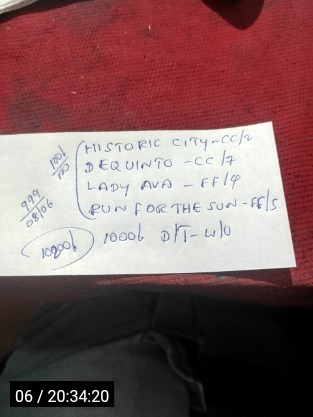 HISTORIC CITY-CC/2
DEQUINTO -CC/7
LADY AVA - FF/4
RUN FOR THE SUN-FF/5
1000/
100
999
08/06
1000/ D/T- W/O
06 / 20:34:20